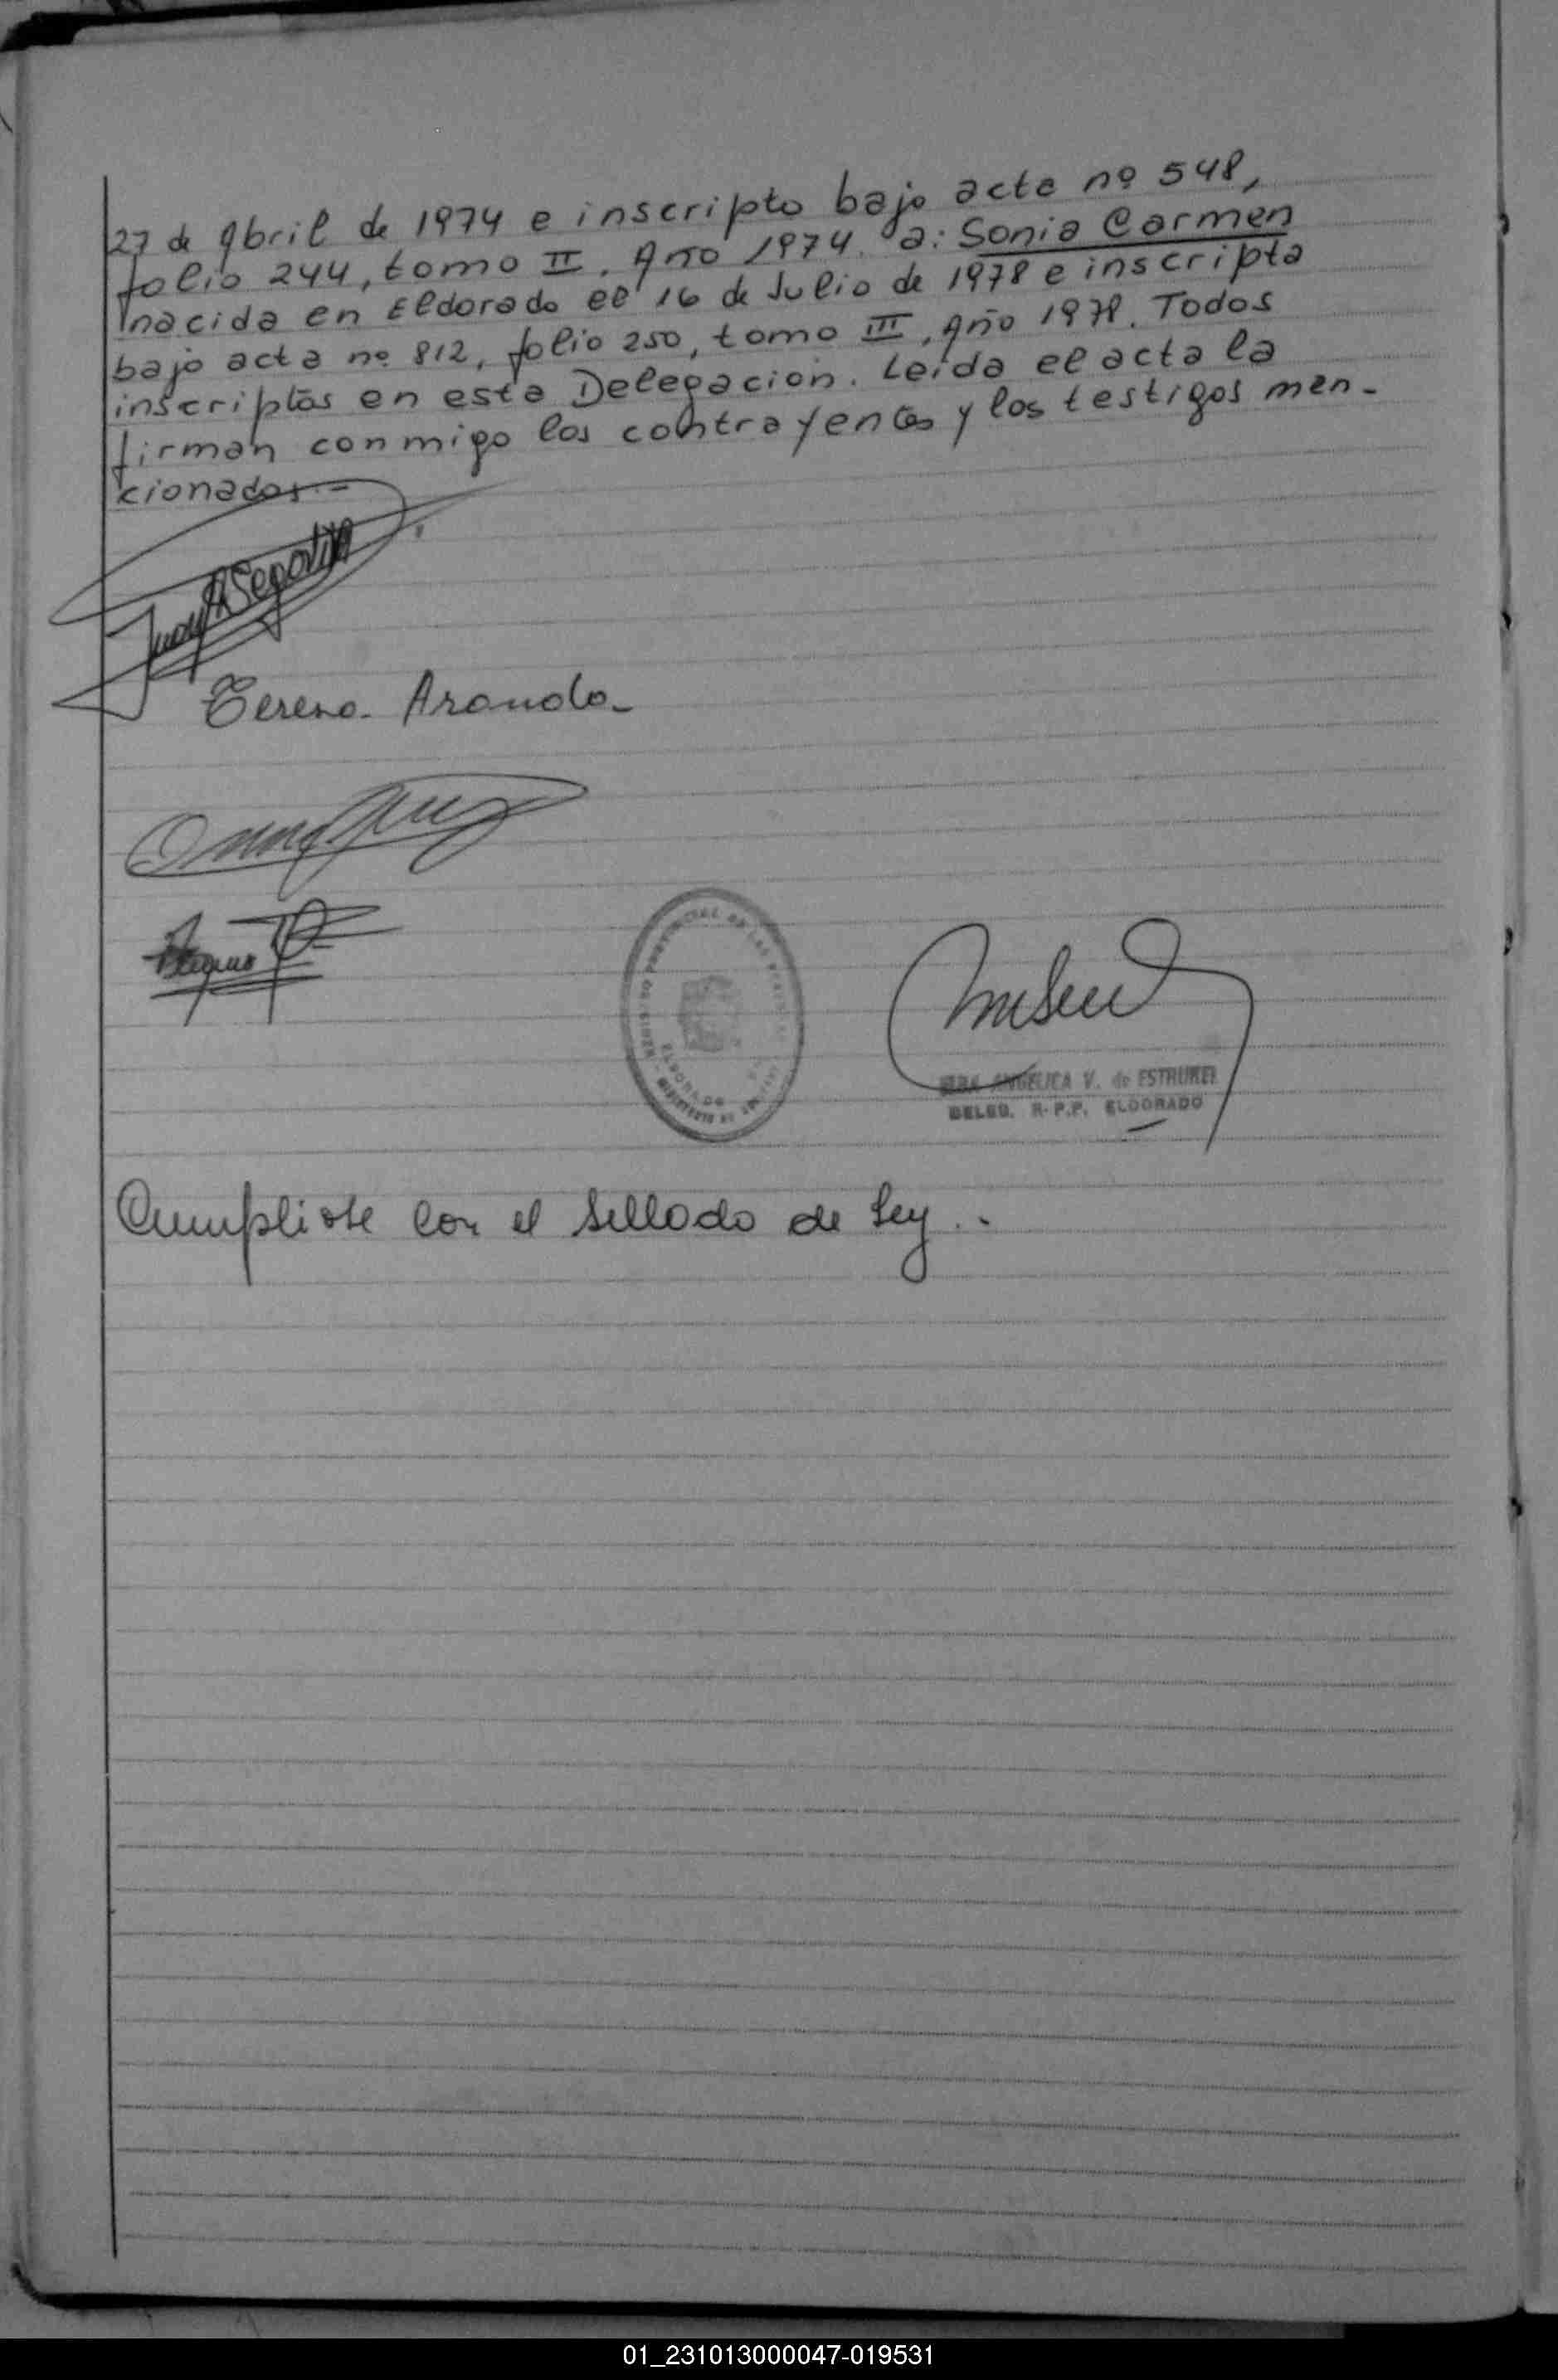 27 de Abril de 1974 e inscripto bajo acta nº 548,
folio 244, tomo II. Año 1974. a: Sonia Carmen
nacida en Eldorado el 16 de Julio de 1978 e inscripta
bajo acta nº 812, folio 250, tomo III, Año 1978. Todos
inscriptos en esta Delegación. Leída el acta la
firman conmigo los contrayentes y los testigos men-
cionados.-
Juan A Segovia
Teresa Aranda
ANGELICA V. de ESTRUKEL
DELEG. R.P.P. ELDORADO
ELDORADO
Cumpliose con el sellado de Ley.-
01_231013000047-019531